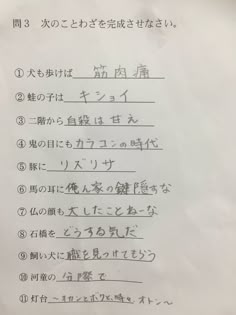 問3 次のことわざを完成させなさい。
①犬も歩けば 筋肉痛
②蛙の子は キショイ
③二階から 自殺は甘え
④鬼の目にも カラコンの時代
⑤豚に リズリサ
⑥馬の耳に 俺ん家の鍵隠すな
⑦仏の顔も 大したことねーな
⑧石橋を どうする気だ
⑨飼い犬に 職を見つけてもらう
⑩河童の 分際で
⑪灯台 〜オカンとボクと、時々 オトン〜